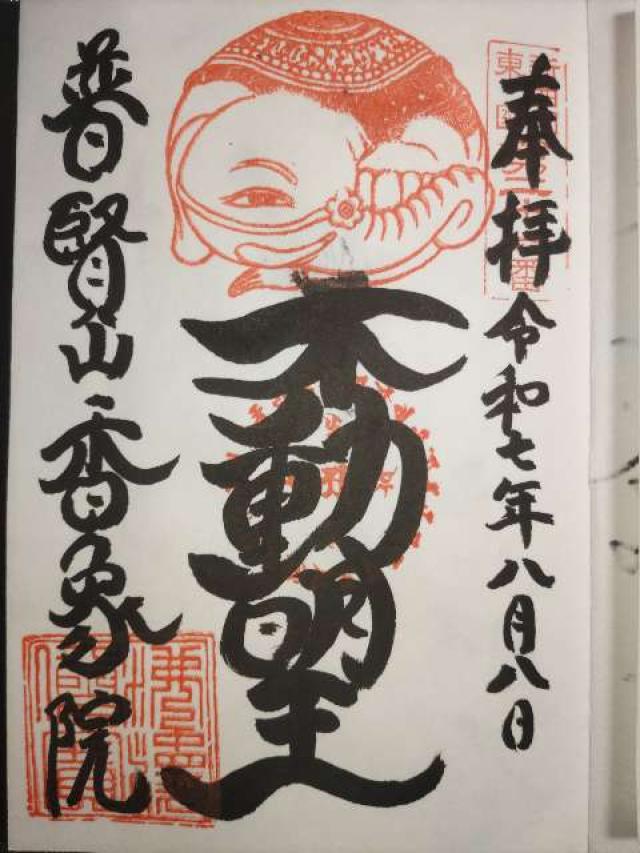 奉拝
令和七年八月八日
不動明王
普賢山香象院